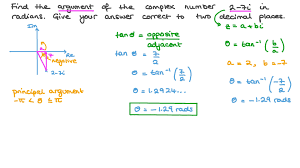 Find the argument of the complex number 2-7i in
radians. Give your answer correct to two decimal places.
z = a + bi
Im
Re
θ
negative
2-7i
principal argument
-π < θ ≤ π
tan θ = opposite
adjacent
tan θ = 7
2
θ = tan⁻¹ (7/2)
θ = 1.2924...
θ = -1.29 rads
θ = tan⁻¹ (b/a)
a = 2, b = -7
θ = tan⁻¹ (-7/2)
θ = -1.29 rads